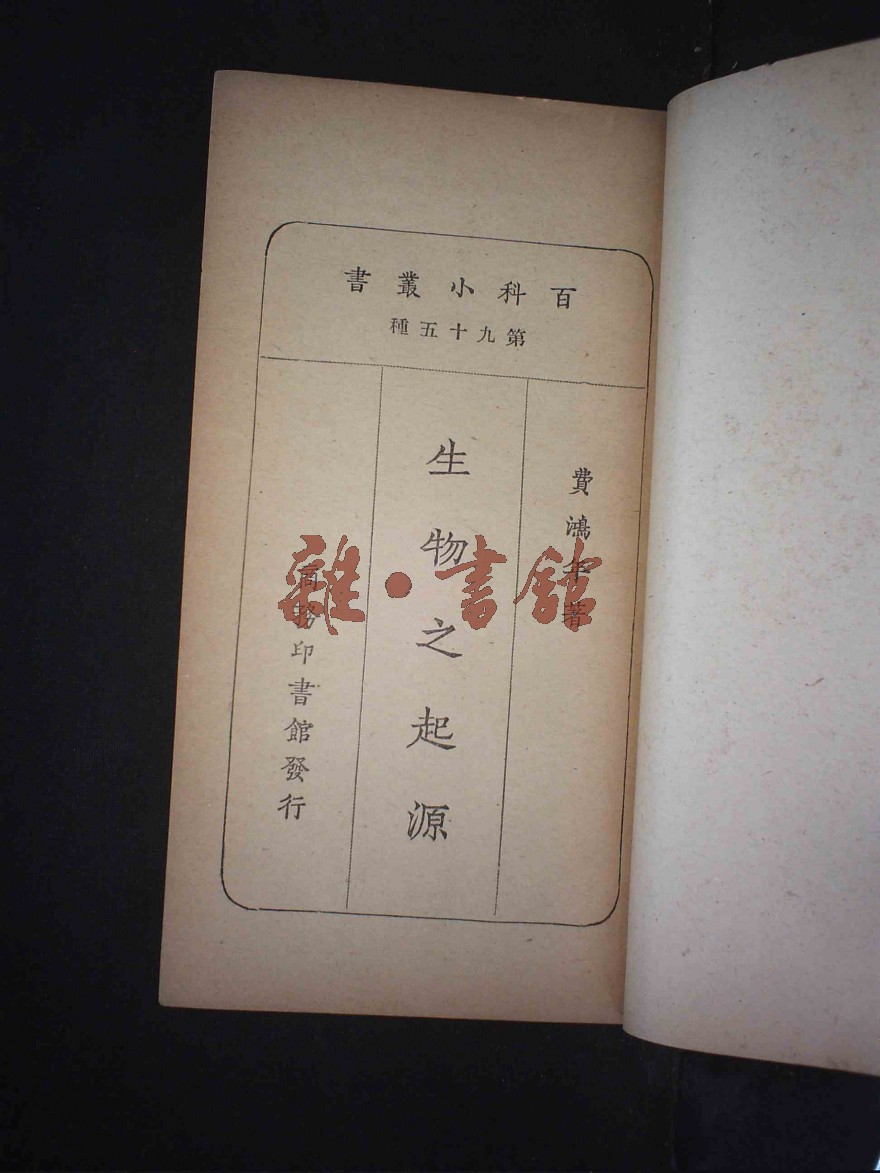 百科小叢書
第九十五種
費鴻年著
生物之起源
商務印書館發行
雜·書館